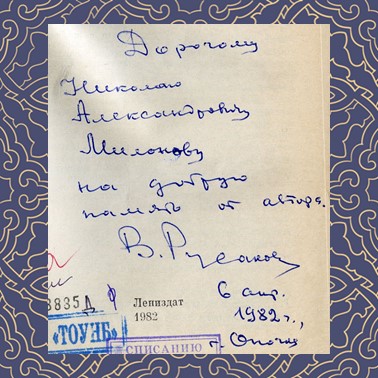 Дорогому
Николаю
Александровичу
Милонову
на добрую
память от автора.
В. Русаков
6 апр.
1982 г.,
г. Опочка
3835 Д
Лениздат
1982
«ТОУНБ»
СПИСАНИЮ